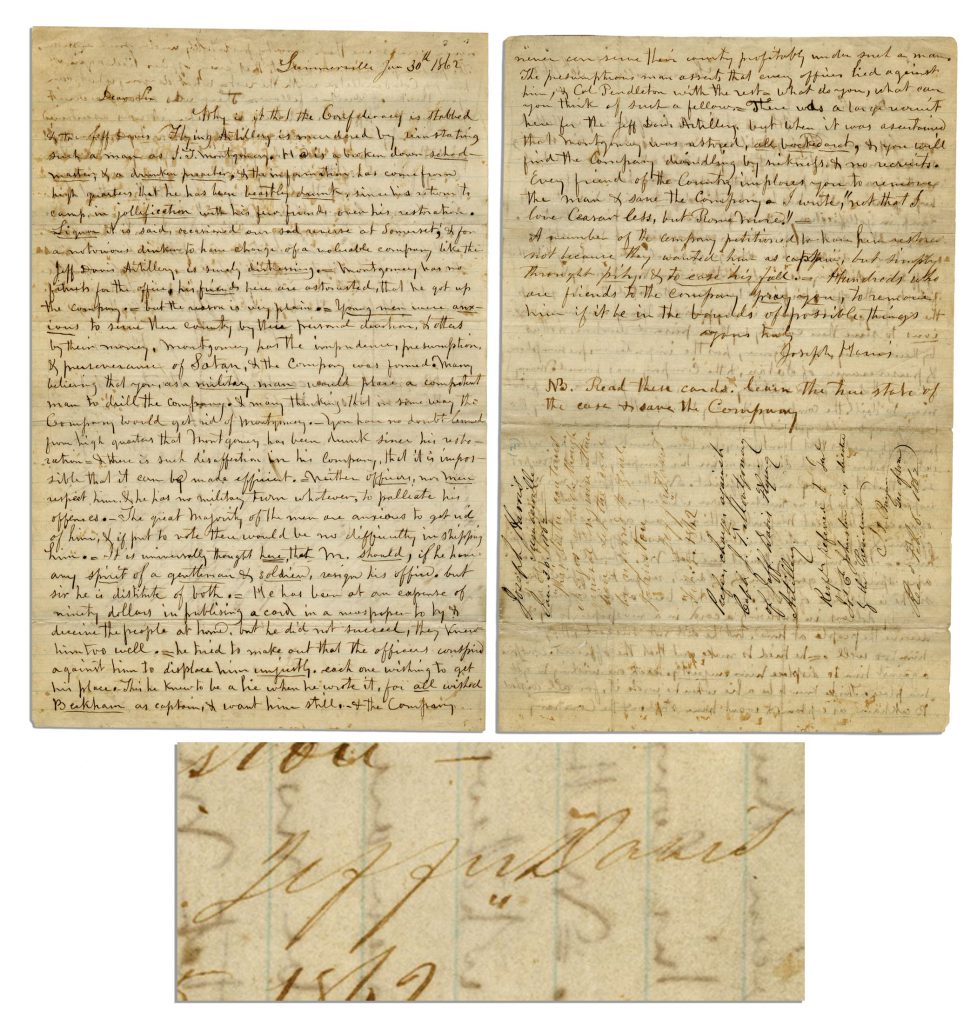 Summerville Jan 30th 1862
Dear Sir
Why is it that the Confederacy is stabbed
& the Jeff Davis Flying Artillery is murdered by reinstating
such a man as J.T. Montgomery. He is a broken down school
master, & a drunken preacher, & the information has come from
high quarters, that he has been beastly drunk, since his return to
camp in jollification with his few friends over his restoration.
Liquor it is said, occasioned our sad reverse at Somerset, & for
a notorious drunkard to have charge of a valuable company like the
Jeff Davis Artillery is surely distressing. Montgomery has no
talents for the office, his friends here are astonished, that he got up
the company. but the reason is very plain. Young men were anx-
ious to serve there country by there personal devotion, & others
by their money. Montgomery has the impudence, presumption,
& perseverance of Satan, & the Company was formed. Many
believing that you, as a military man would place a competent
man to drill the company. & many thinking that in some way the
Company would get rid of Montgomery. You have no doubt learned
from high quarters that Montgomery has been drunk since his resto-
ration & there is such disaffection in his company, that it is impos-
sible that it can be made efficient. Neither officers, nor men
respect him, & he has no military turn whatever, to palliate his
offences. The great majority of the men are anxious to get rid
of him, & if put to vote there would be no difficulty in shipping
him. It is universally thought here, that M. should, if he have
any spirit of a gentleman & soldier, resign his office. but
sir he is distitute of both. He has been at an expense of
ninty dollars in publising a card in a newspaper to try &
deceive the people at home. but he did not succeed, they knew
him too well. he tried to make out that the officers conspired
against him to displace him unjustly. each one wishing to get
his place. This he knew to be a lie when he wrote it, for all wished
Beckham as captain, & want him still. & the Company
never can serve their country profitably under such a man.
The presumptious man asserts that every officer lied against
him, & Col Pendleton with the rest. what do you, what can
you think of such a fellow. There was a large recruit
here for the Jeff Davis Artillery. but when it was ascertained
that Montgomery was restored, all backed out, & you will
find the Company dwindling by sickness, & no recruits.
Every friend of the Country implores you to remove
the man & save the Company. I write, "not that I
love Ceasar less, but Rome more."
A number of the company petitioned to have him restored
not because they wanted him as captain, but simply
throught pity & to ease his fall. Hundreds who
are friends to the company, pray you, to remove
him if it be in the bounds of possible things
yours truly
Joseph Harris
NB. Read these cards, learn the true state of
the case & save the Company
Joseph Harris
Summerville
Jan 30 1862
Capt J.T. Montgomery
of Jeff Davis Flying
Artillery
Jeffn Davis
1862